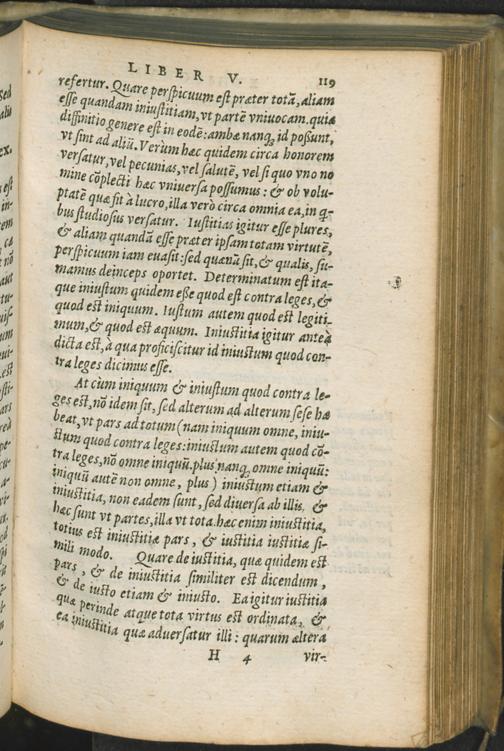 LIBER V. 119
refertur. Quare perspicuum est præter totã, aliam
esse quandam iniustitiam, vt partẽ vniuocam. quia
diffinitio genere est in eodẽ: ambæ nanq; id possunt,
vt sint ad aliũ. Verùm hæc quidem circa honorem
versatur, vel pecunias, vel salutẽ, vel si quo vno no
mine cõplecti hæc vniuersa possumus: & ob volu-
ptatẽ quæ sit à lucro, illa verò circa omnia ea, in q-
bus studiosus versatur. Iustitias igitur esse plures,
& aliam quandã esse præter ipsam totam virtutẽ,
perspicuum iam euasit: sed quænã sit, & qualis, su-
mamus deinceps oportet. Determinatum est ita-
que iniustum quidem esse quod est contra leges, &
quod est iniquum. Iustum autem quod est legiti-
mum, & quod est æquum. Iniustitia igitur anteà
dicta est, à qua proficiscitur id iniustum quod con-
tra leges dicimus esse.
At cùm iniquum & iniustum quod contra le-
ges est, nõ idem sit, sed alterum ad alterum sese ha
beat, vt pars ad totum (nam iniquum omne, iniu-
stum quod contra leges: iniustum autem quod cõ-
tra leges, nõ omne iniquũ. plus nanq; omne iniquũ:
iniquũ autẽ non omne, plus) iniustum etiam &
iniustitia, non eadem sunt, sed diuersa ab illis. &
hæc sunt vt partes, illa vt tota. hæc enim iniustitia,
totius est iniustitiæ pars, & iustitia iustitiæ si-
mili modo. Quare de iustitia, quæ quidem est
pars, & de iniustitia similiter est dicendum,
& de iusto etiam & iniusto. Ea igitur iustitia
quæ perinde atque tota virtus est ordinata, &
ea iniustitia quæ aduersatur illi: quarum altera
H 4 vir-